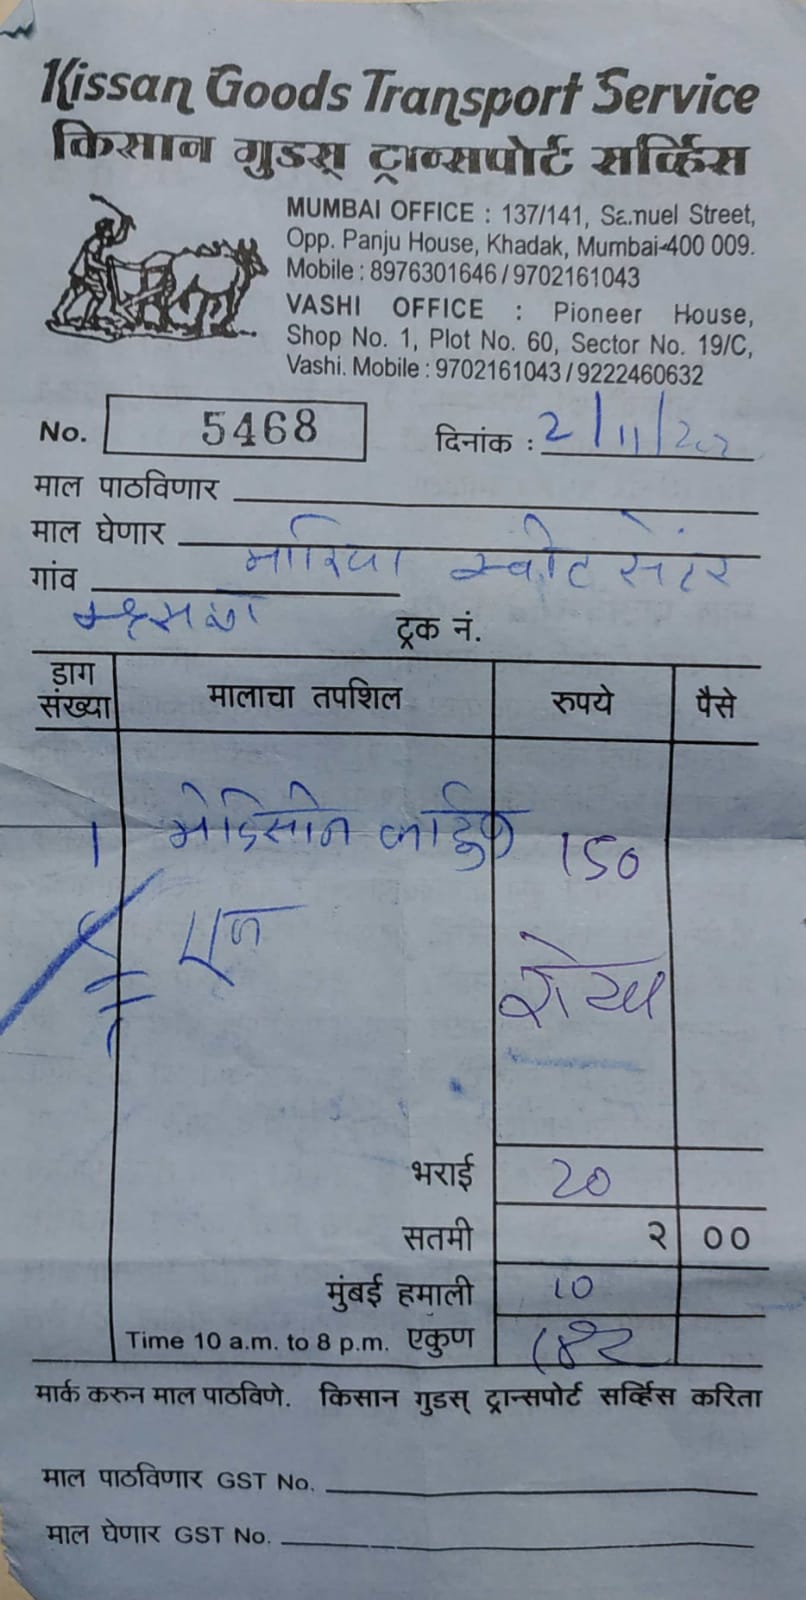 Kissan Goods Transport Service
किसान गुडस् ट्रान्सपोर्ट सर्व्हिस
MUMBAI OFFICE : 137/141, Samuel Street,
Opp. Panju House, Khadak, Mumbai-400 009.
Mobile : 8976301646 / 9702161043
VASHI OFFICE : Pioneer House,
Shop No. 1, Plot No. 60, Sector No. 19/C,
Vashi. Mobile : 9702161043 / 9222460632
No. 5468 दिनांक : 2/11/202
माल पाठविणार
माल घेणार
गांव मारिया स्कोट सेंटर
ट्रक नं.
डाग संख्या मालाचा तपशिल रुपये पैसे
1 मेडिसीन 150
भराई 20
सतमी २ ००
मुंबई हमाली 10
Time 10 a.m. to 8 p.m. एकुण १८२
मार्क करुन माल पाठविणे. किसान गुडस् ट्रान्सपोर्ट सर्व्हिस करिता
माल पाठविणार GST No.
माल घेणार GST No.